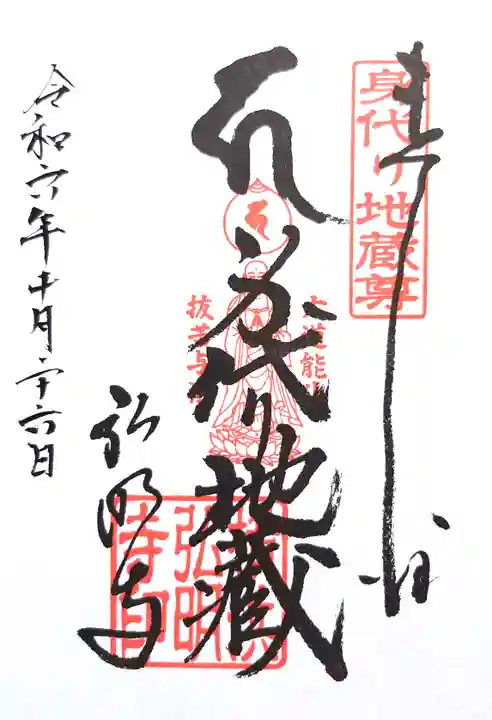 奉拝
身代り地蔵尊
身代り地蔵
六道能化
抜苦与楽
弘明寺
弘明寺印
令和六年十月二十六日